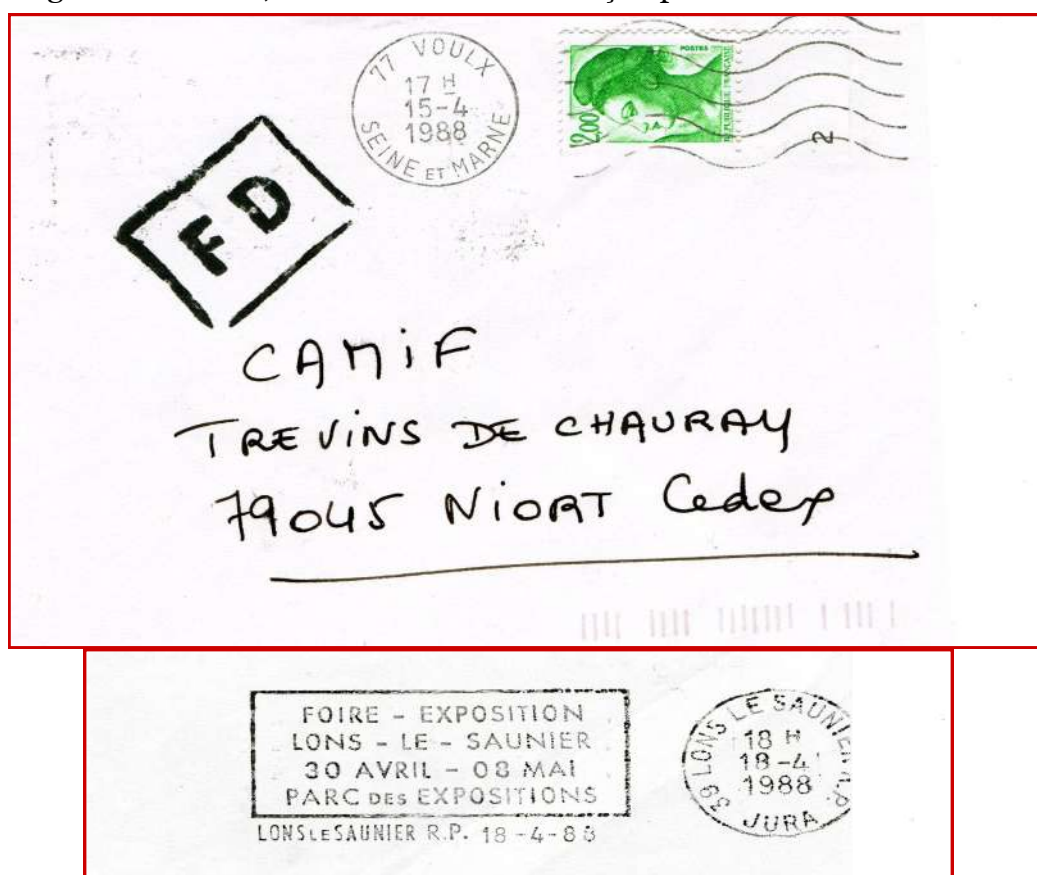 77 VOULX
17 H
15-4
1988
SEINE ET MARNE
POSTES
2,00
REPUBLIQUE FRANÇAISE
2
FD
CAMiF
TREVINS DE CHAURAY
79045 NIORT Cedex
FOIRE - EXPOSITION
LONS - LE - SAUNIER
30 AVRIL - 08 MAI
PARC DES EXPOSITIONS
LONS LE SAUNIER R.P. 18-4-88
39 LONS LE SAUNIER R.P.
18 H
18-4
1988
JURA